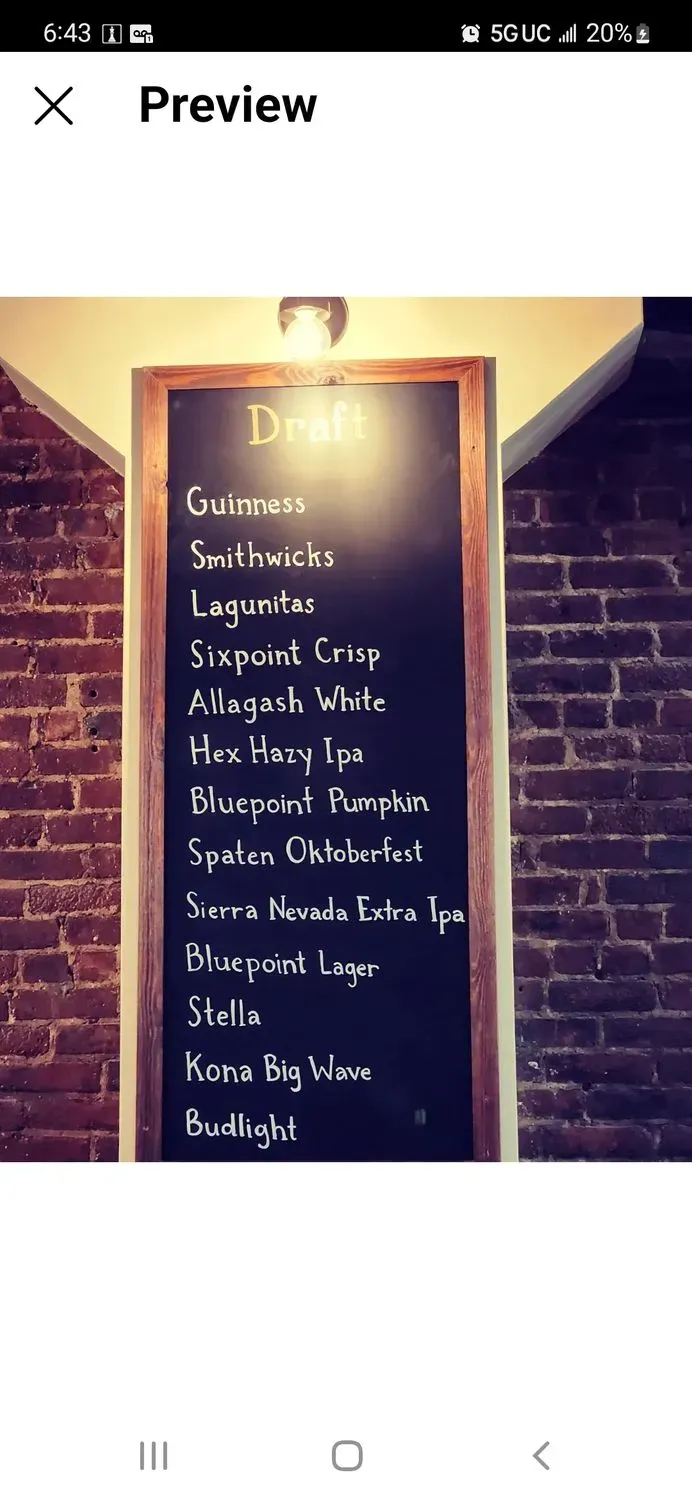 6:43
5G UC 20%
Preview
Draft
Guinness
Smithwicks
Lagunitas
Sixpoint Crisp
Allagash White
Hex Hazy Ipa
Bluepoint Pumpkin
Spaten Oktoberfest
Sierra Nevada Extra Ipa
Bluepoint Lager
Stella
Kona Big Wave
Budlight